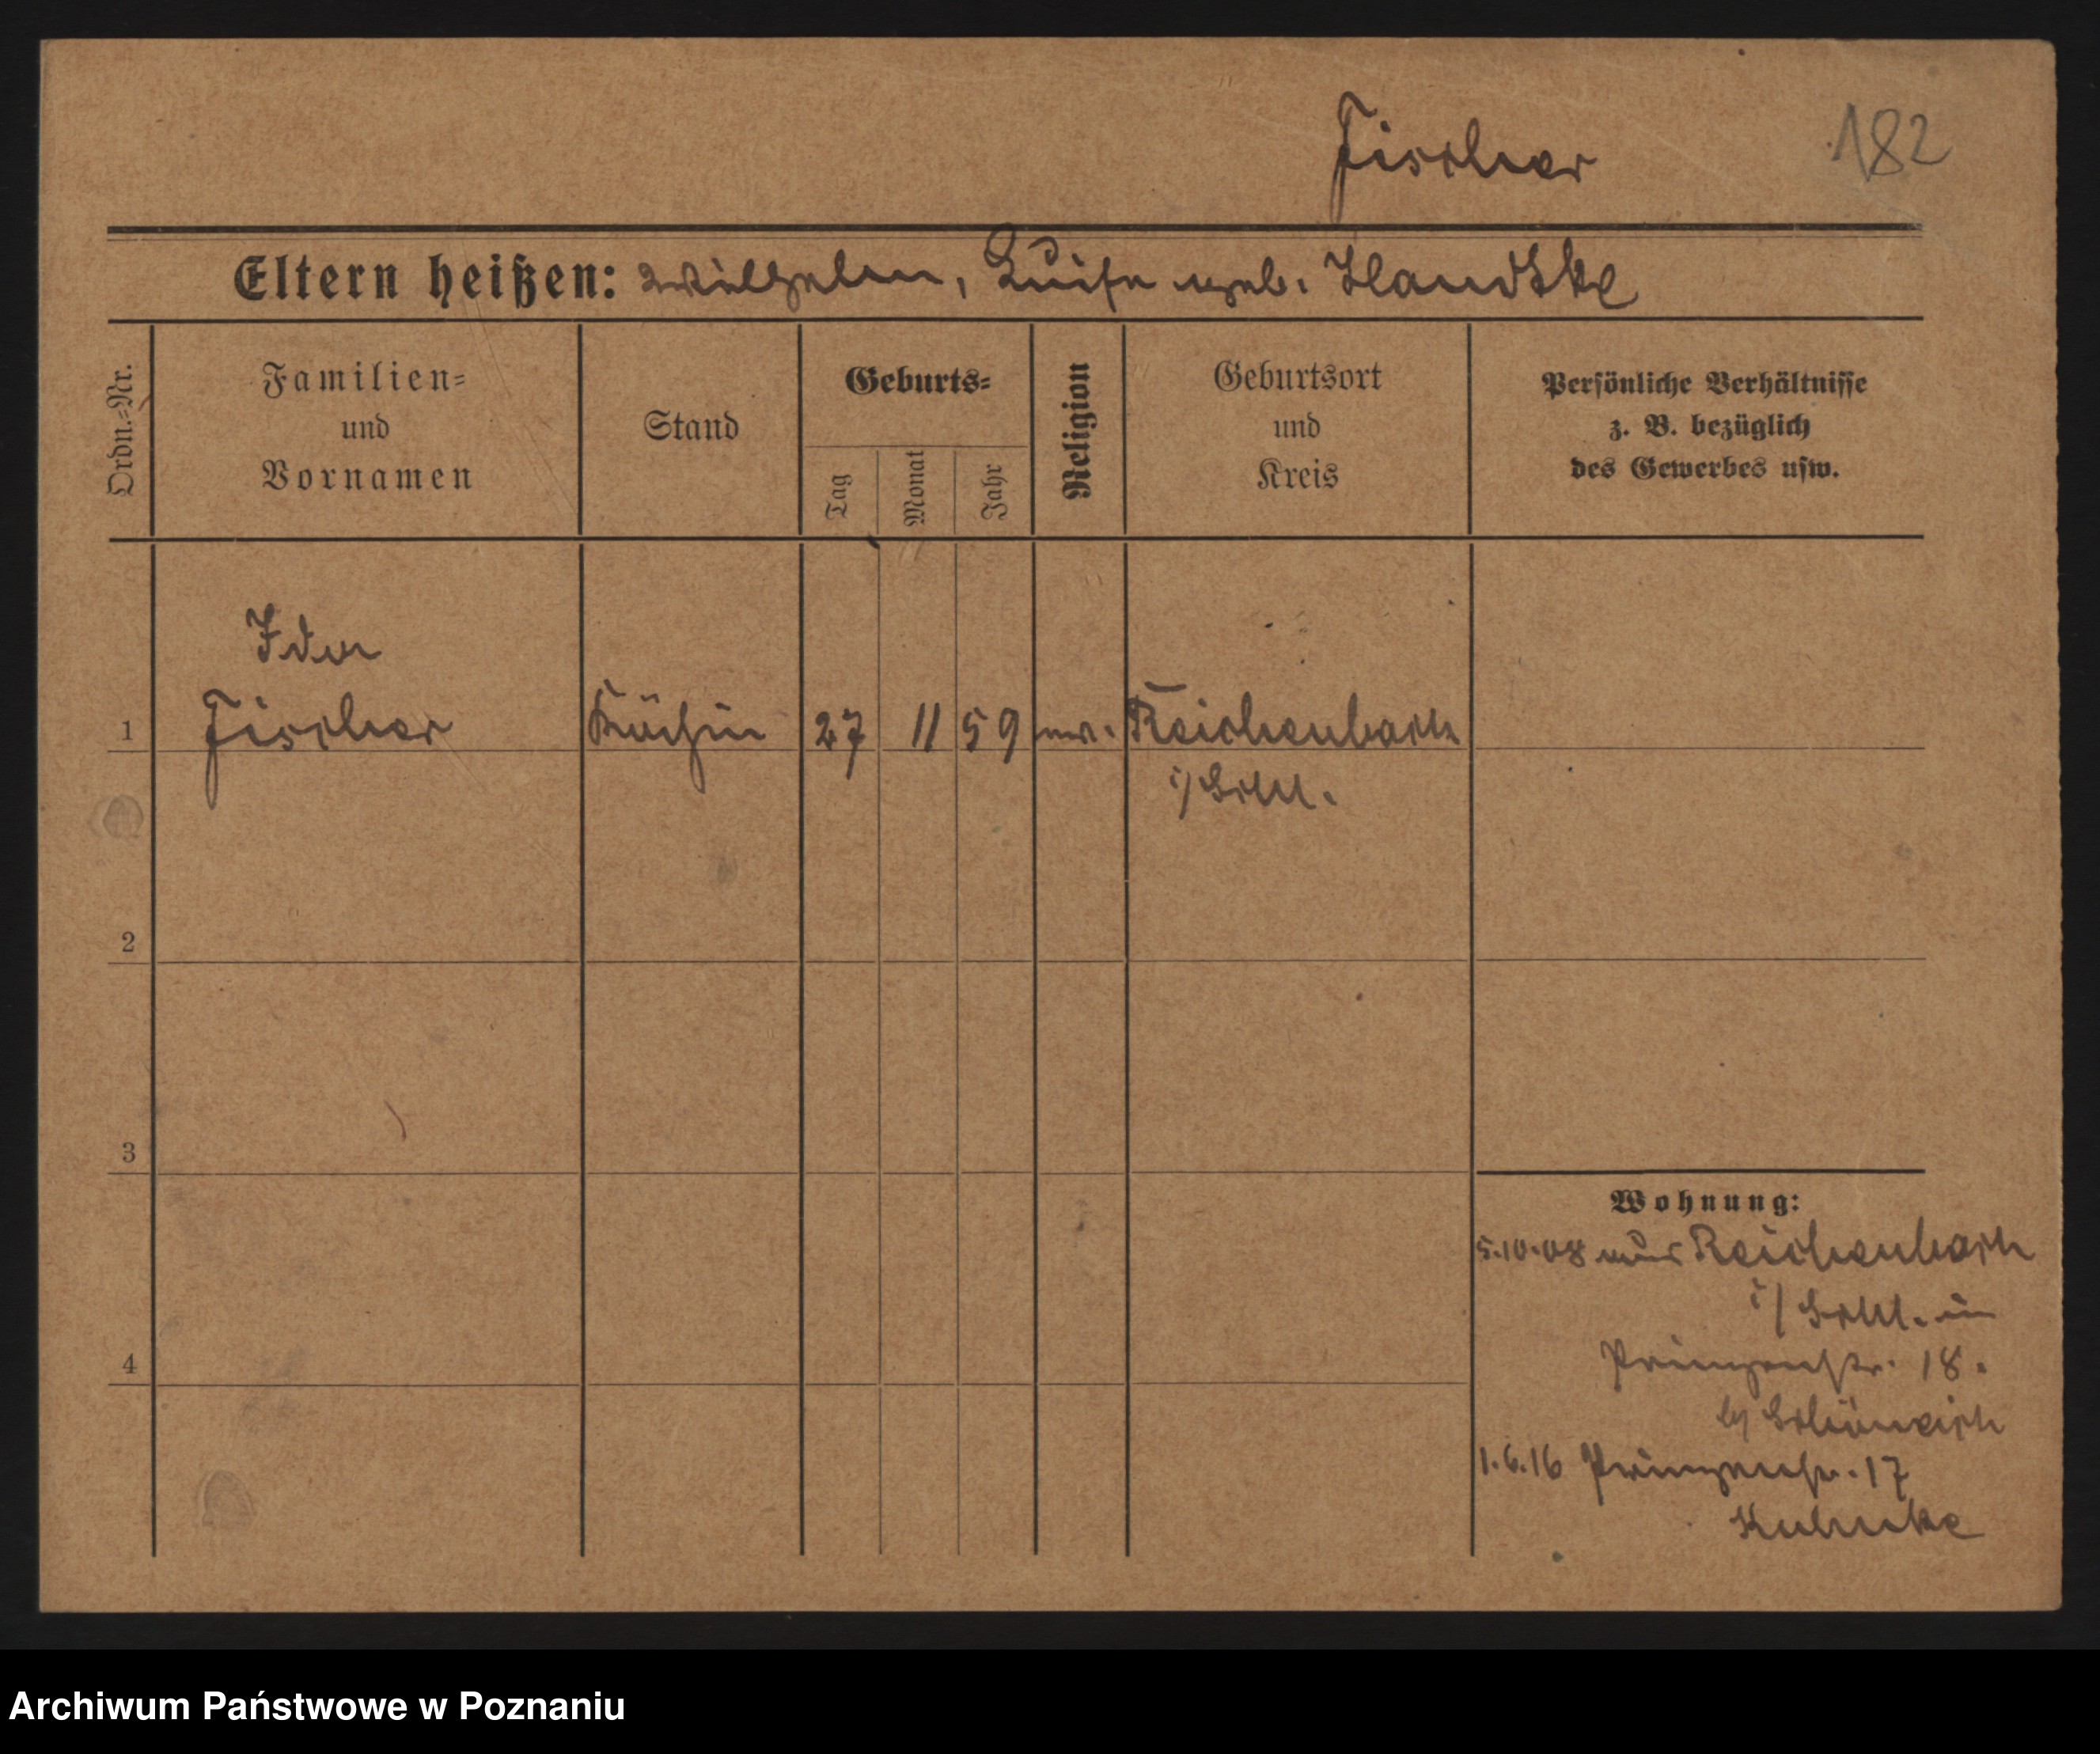 Fischer
182
Eltern heißen: Wilhelm, Luise geb. Handtke
Ordn.=Nr.
Familien=
und
Vornamen
Stand
Geburts=
Tag
Monat
Jahr
Religion
Geburtsort
und
Kreis
Persönliche Verhältnisse
z. B. bezüglich
des Gewerbes usw.
Ida
1 Fischer Köchin 27 11 59 ev. Reichenbach
i/Schl.
2
3
4
Wohnung:
5.10.08 aus Reichenbach
i/Schl. in
Prinzenstr. 18.
b/ Schönaich
1.6.16 Prinzenstr. 17
Kuhnke
Archiwum Państwowe w Poznaniu